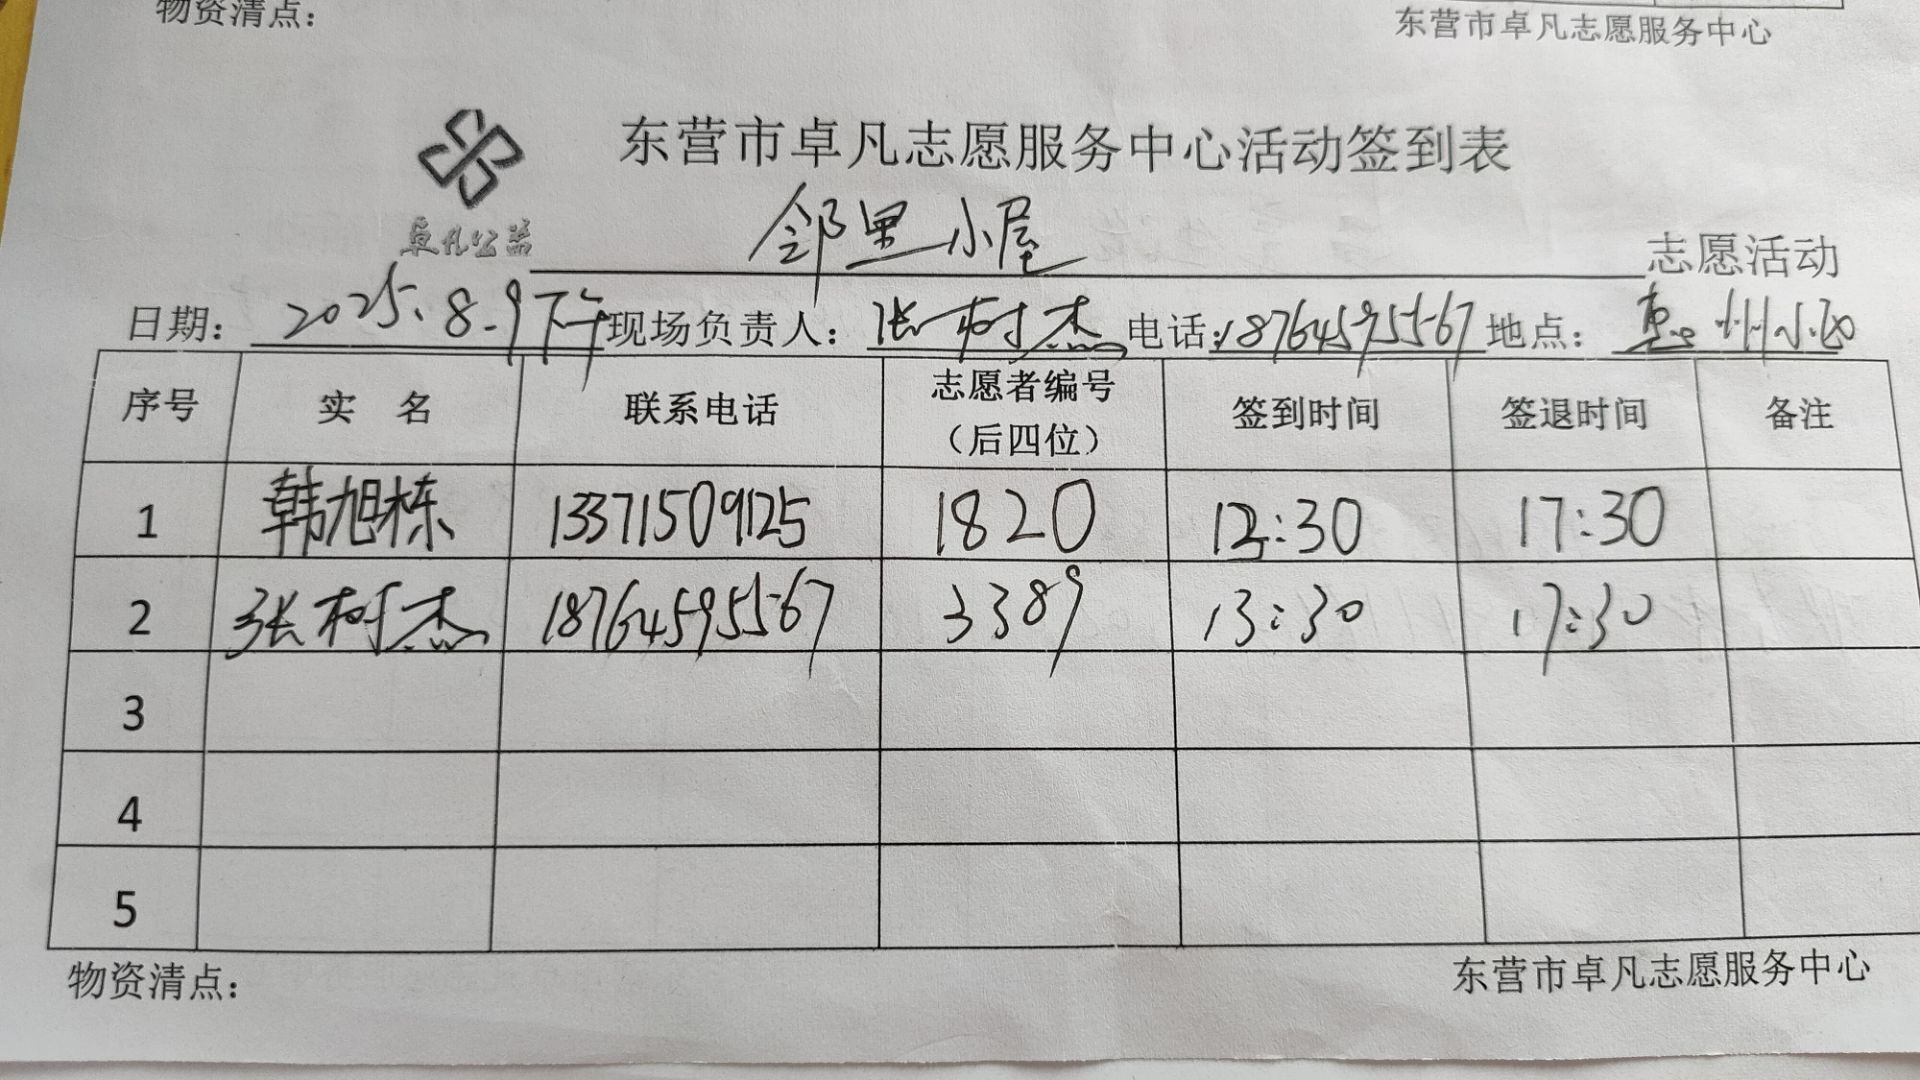 物资清点：
东营市卓凡志愿服务中心
东营市卓凡志愿服务中心活动签到表
卓凡公益
邻里小屋 志愿活动
日期： 2025.8.9下午 现场负责人： 张树杰 电话：18764595567 地点： 惠州小区
序号 实 名 联系电话 志愿者编号（后四位） 签到时间 签退时间 备注
1 韩旭栋 13371509125 1820 13:30 17:30
2 张树杰 18764595567 3389 13:30 17:30
3
4
5
物资清点：
东营市卓凡志愿服务中心